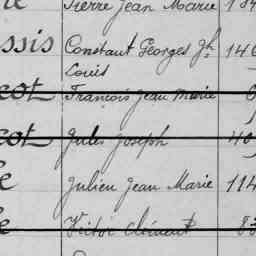 Pierre Jean Marie
ssis Constant Georges Jh
Louis
cot François Jean Marie
cot Jules Joseph 40
e Julien Jean Marie 114
e Victor Clément